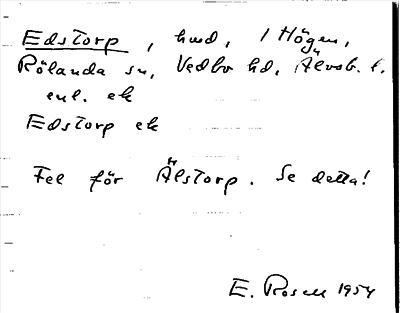 Edstorp, hmd, 1 Högen,
Rölanda sn, Vedbo hd, Älvsb. l.
enl. ek
Edstorp ek
Fel för Älstorp. Se detta!
E. Rosell 1954